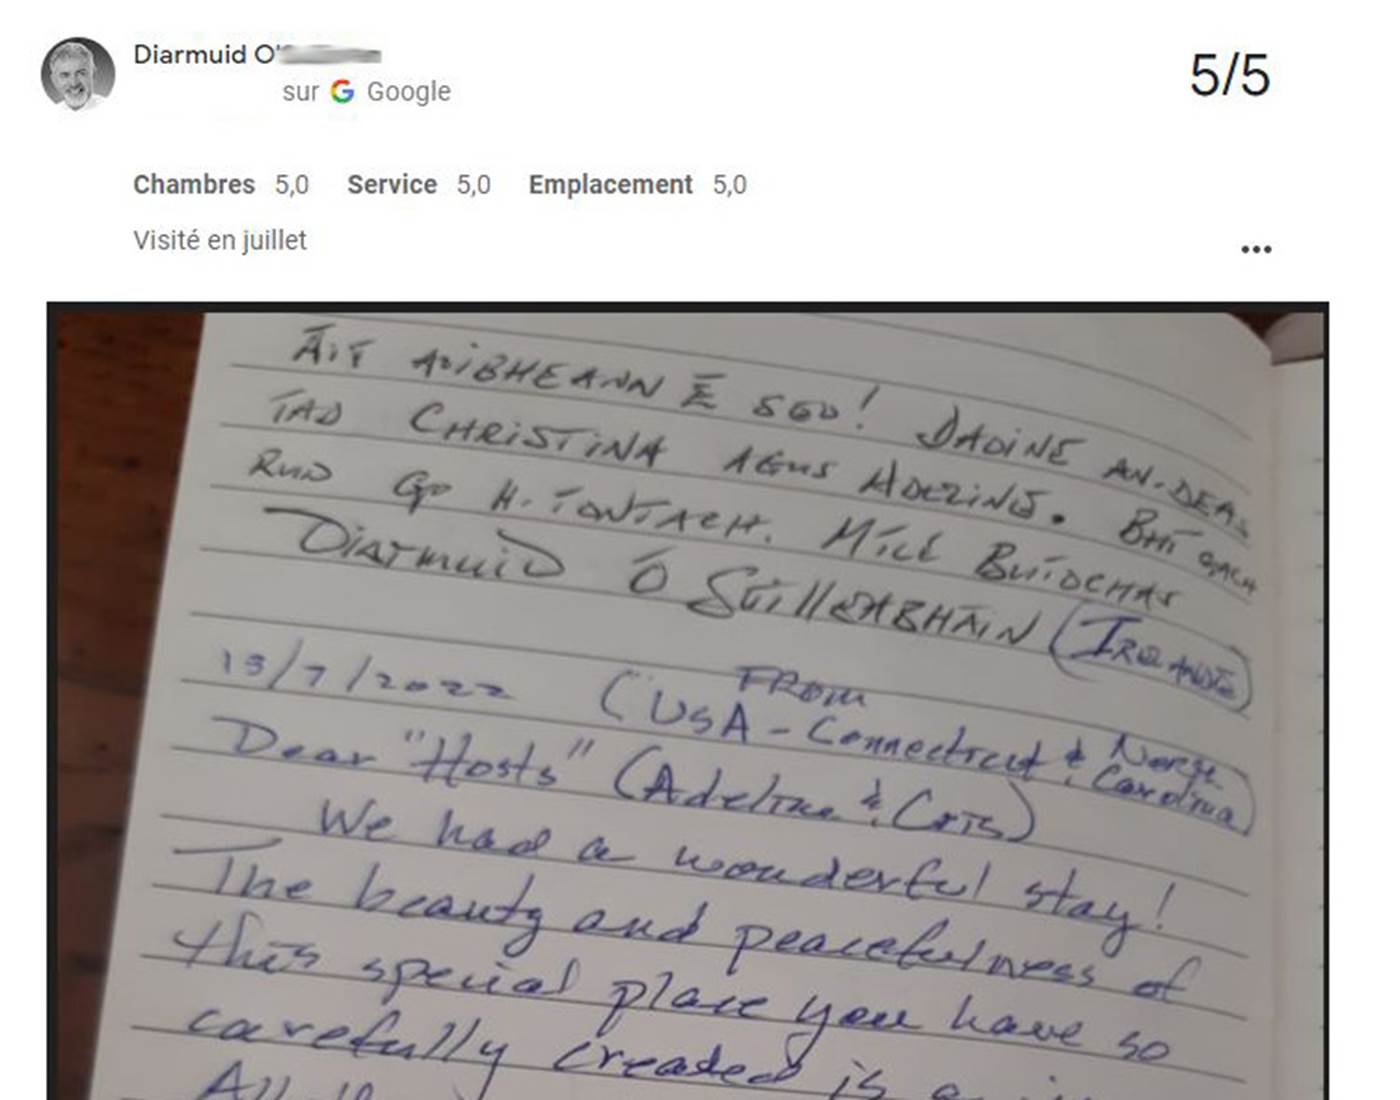 Diarmuid O'
sur Google
5/5
Chambres 5,0 Service 5,0 Emplacement 5,0
Visité en juillet
ÁIT AOIBHEANN É SEO! DAOINE AN-DEAS
IAD CHRISTINA AGUS ADELINE. BHÍ GACH
RUD GO H-IONTACH. MÍLE BUÍOCHAS
DIARMUID Ó SÚILLEABHÁIN (IRLANDE)
13/7/2022 (FROM
USA - Connecticut & North
Carolina)
Dear "Hosts" (Adeline & Cris)
We had a wonderful stay!
The beauty and peacefulness of
this special place you have so
carefully created is
All